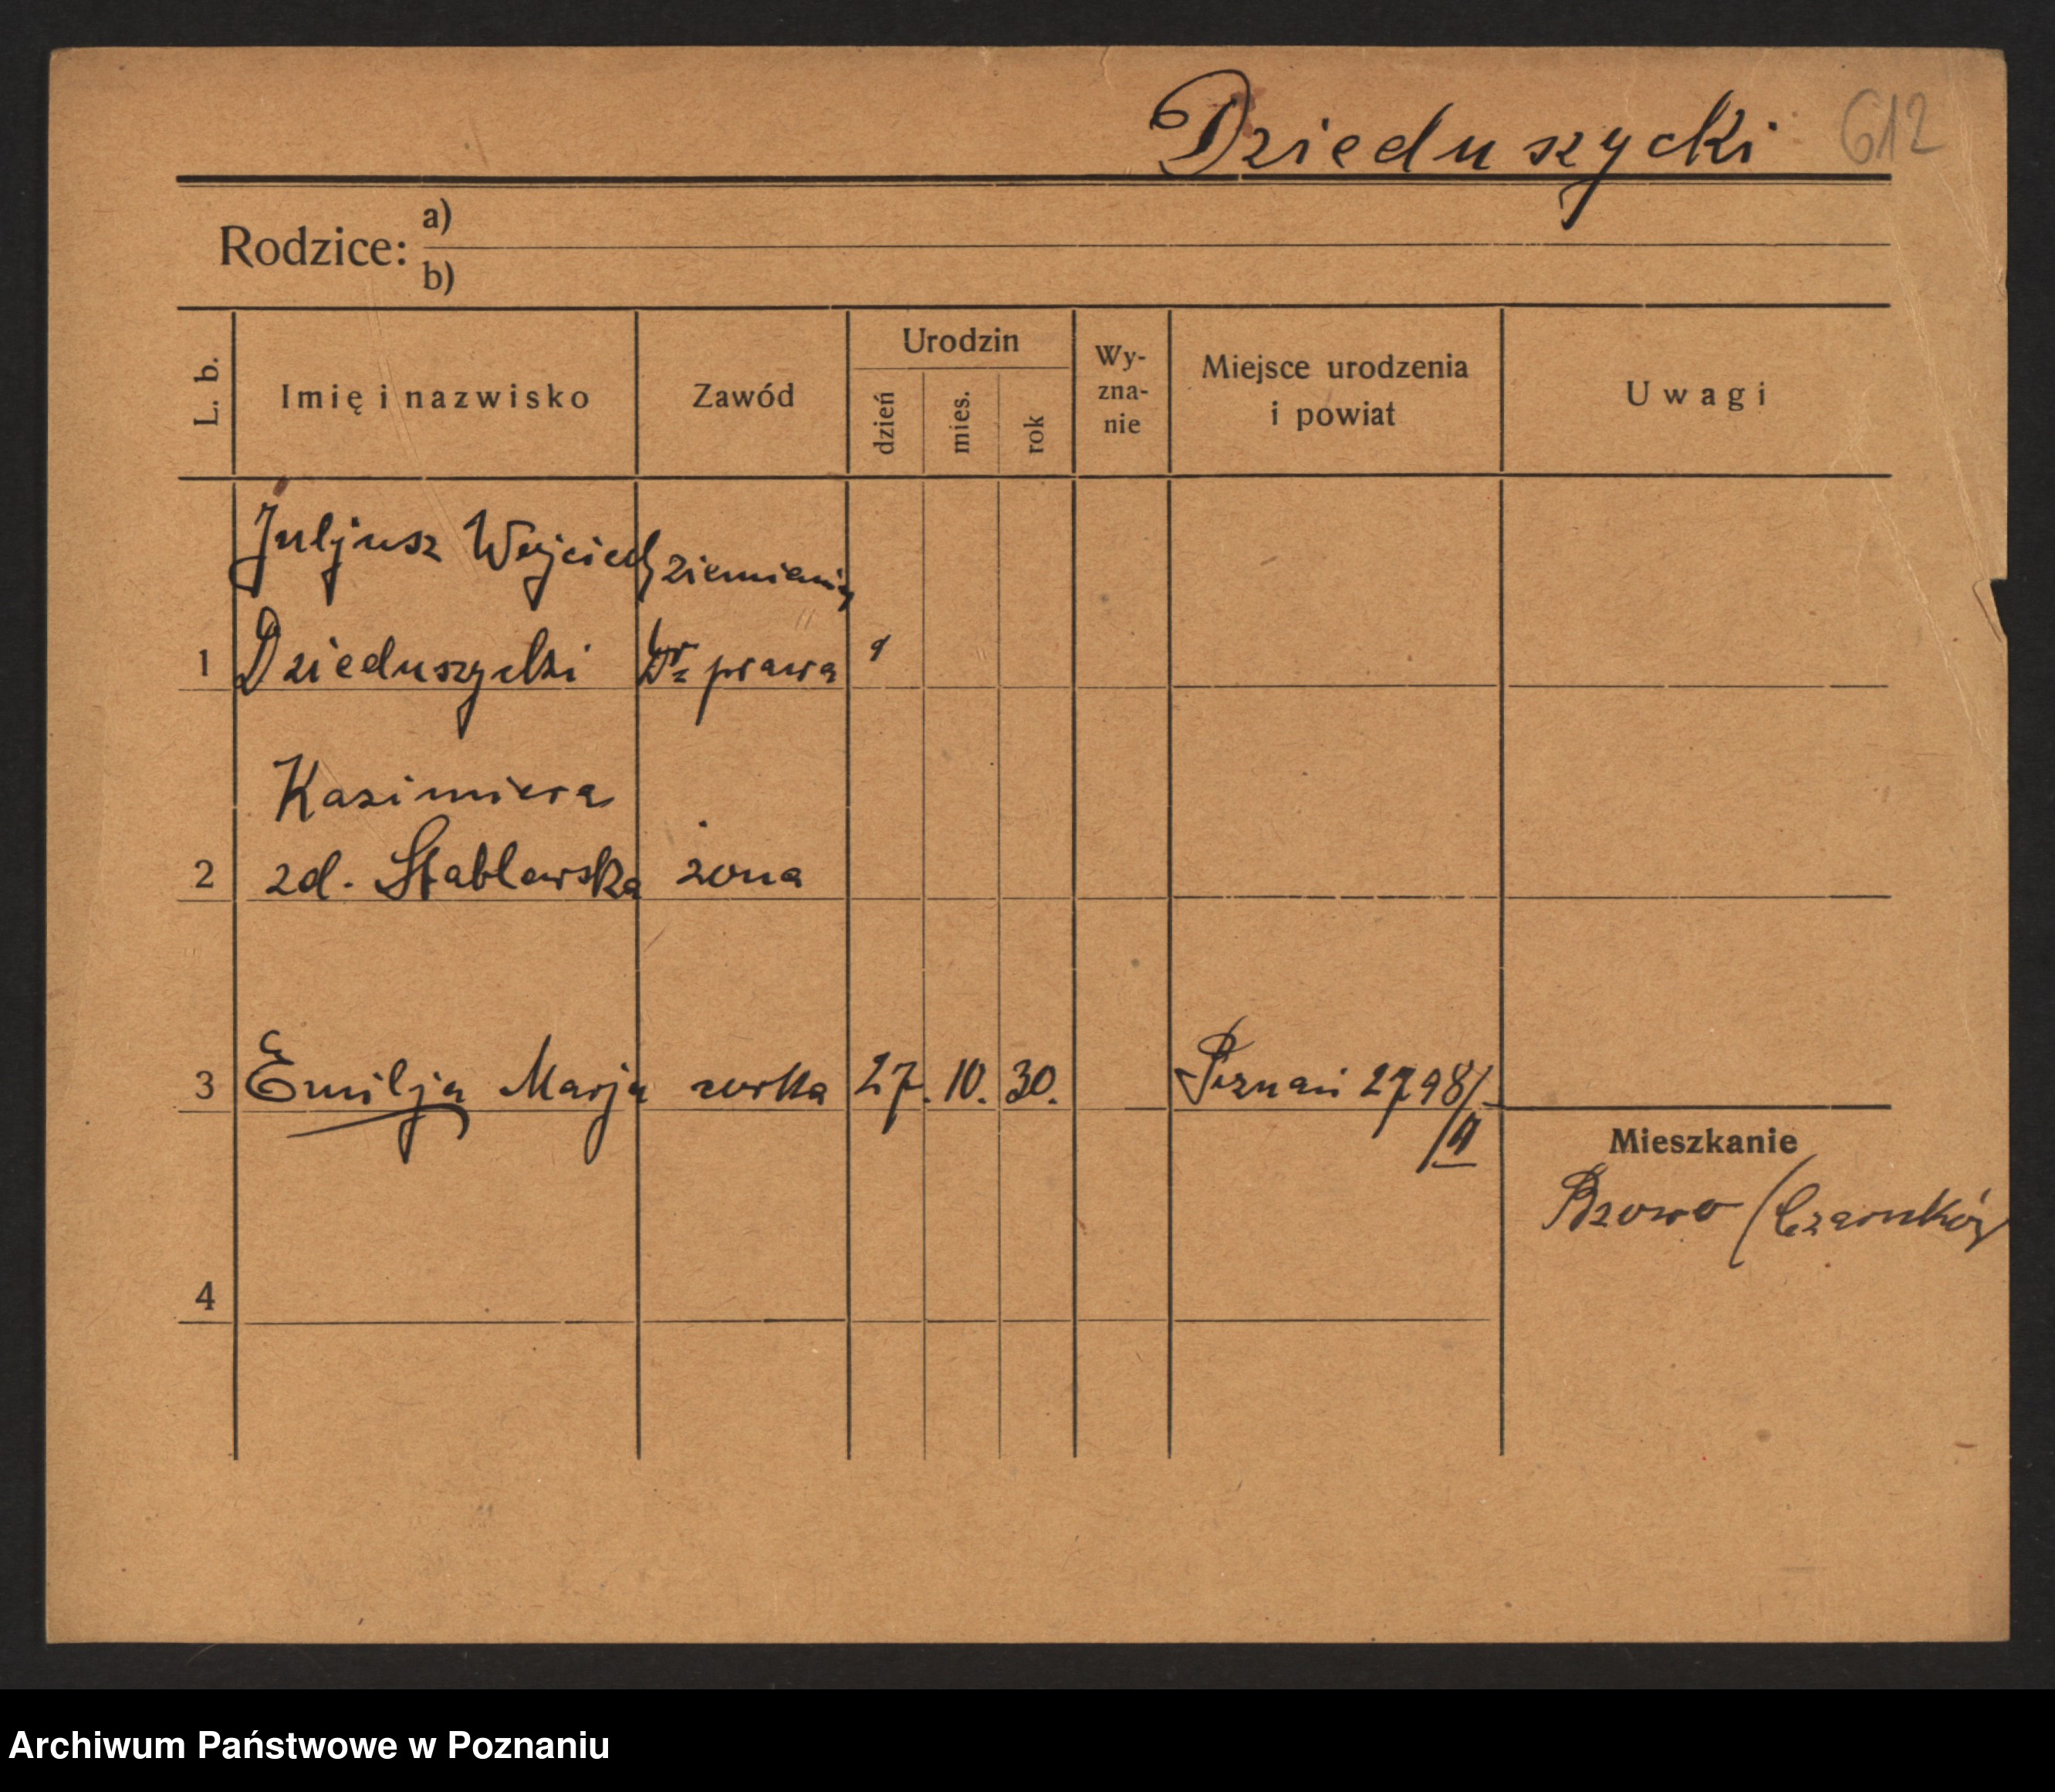 Dzieduszycki 612
Rodzice: a)
b)
L. b.
Imię i nazwisko
Zawód
Urodzin
dzień
mies.
rok
Wy-
zna-
nie
Miejsce urodzenia
i powiat
Uwagi
Juljusz Wojciech ziemianin
1 Dzieduszycki Dr prawa
Kazimiera
2 zd. Stablewska żona
3 Emilja Marja corka 27. 10. 30. Poznań 2798/
/II
Mieszkanie
Brzowo (Czarnków
4
Archiwum Państwowe w Poznaniu